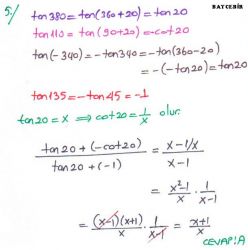 BAYCEBİR
5./ tan380 = tan(360+20) = tan20
tan110 = tan(90+20) = -cot20
tan(-340) = -tan340 = -tan(360-20)
= -(-tan20) = tan20
tan135 = -tan45 = -1
tan20 = x ⟹ cot20 = 1/x olur.
tan20 + (-cot20) / tan20 + (-1) = x - 1/x / x-1
= x²-1 / x · 1 / x-1
= (x-1)(x+1) / x · 1 / x-1 = x+1 / x
CEVAP: A